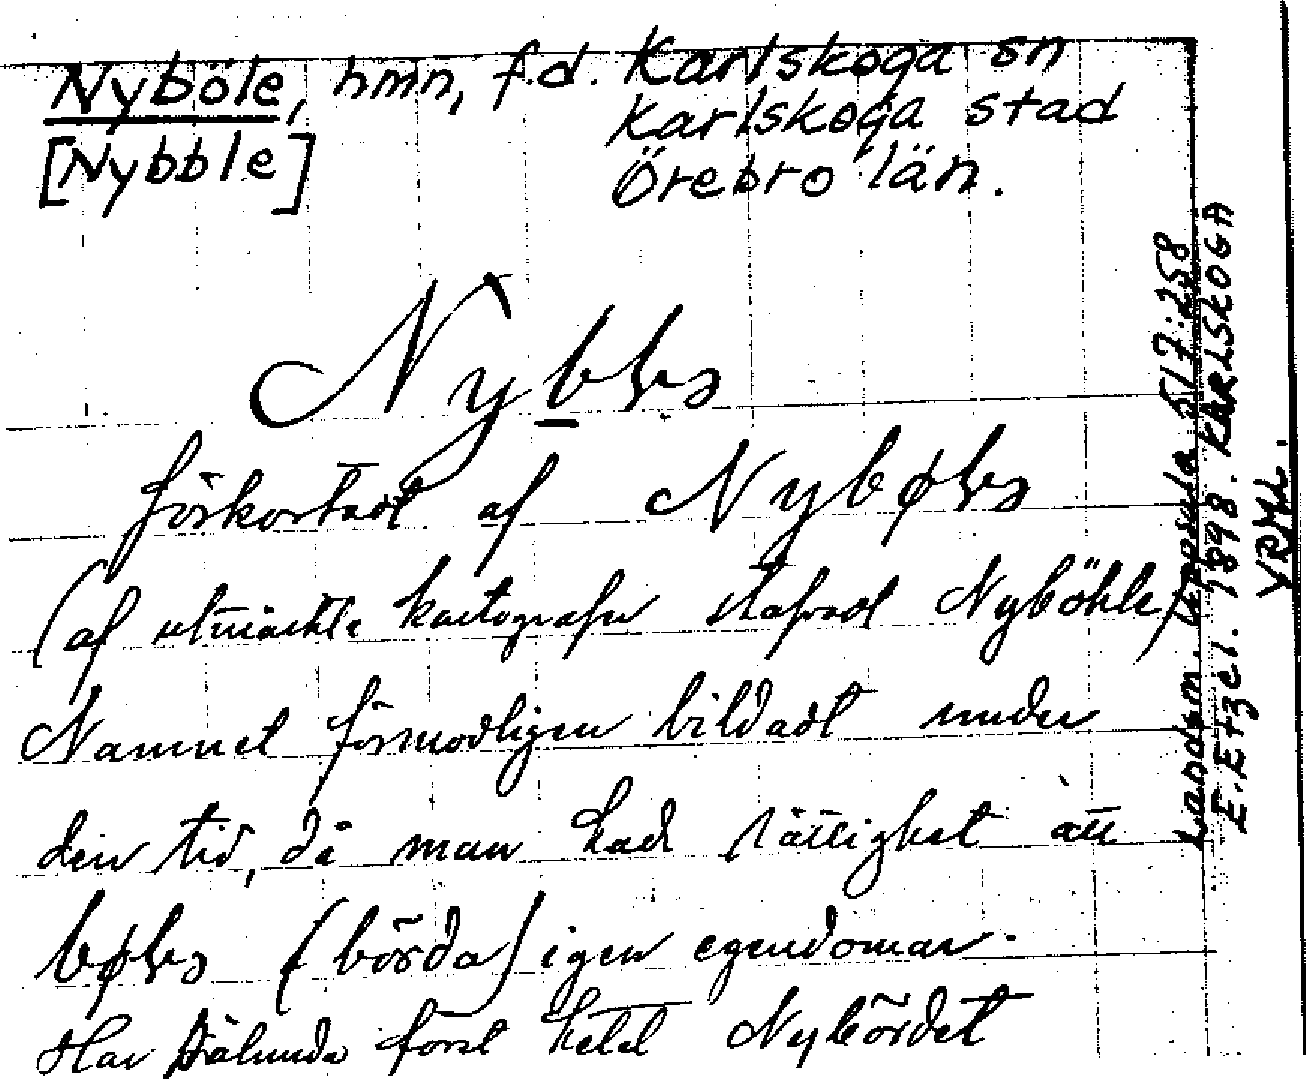 Nyböle, hmn, f.d. Karlskoga sn
Karlskoga stad
[Nybble] Örebro län.
Nybble
förkortadt af Nybøle
(af utmärkte kartografer stafvadt Nyböhle)
Namnet förmodligen bildadt under
den tid, då man hade rättighet att
bøle (börda) igen egendomar.
Har sålunda först hetat Nybördet
Landsm. Uppsala 517:258
E. Etzel. 1898. KARLSKOGA
VRML.